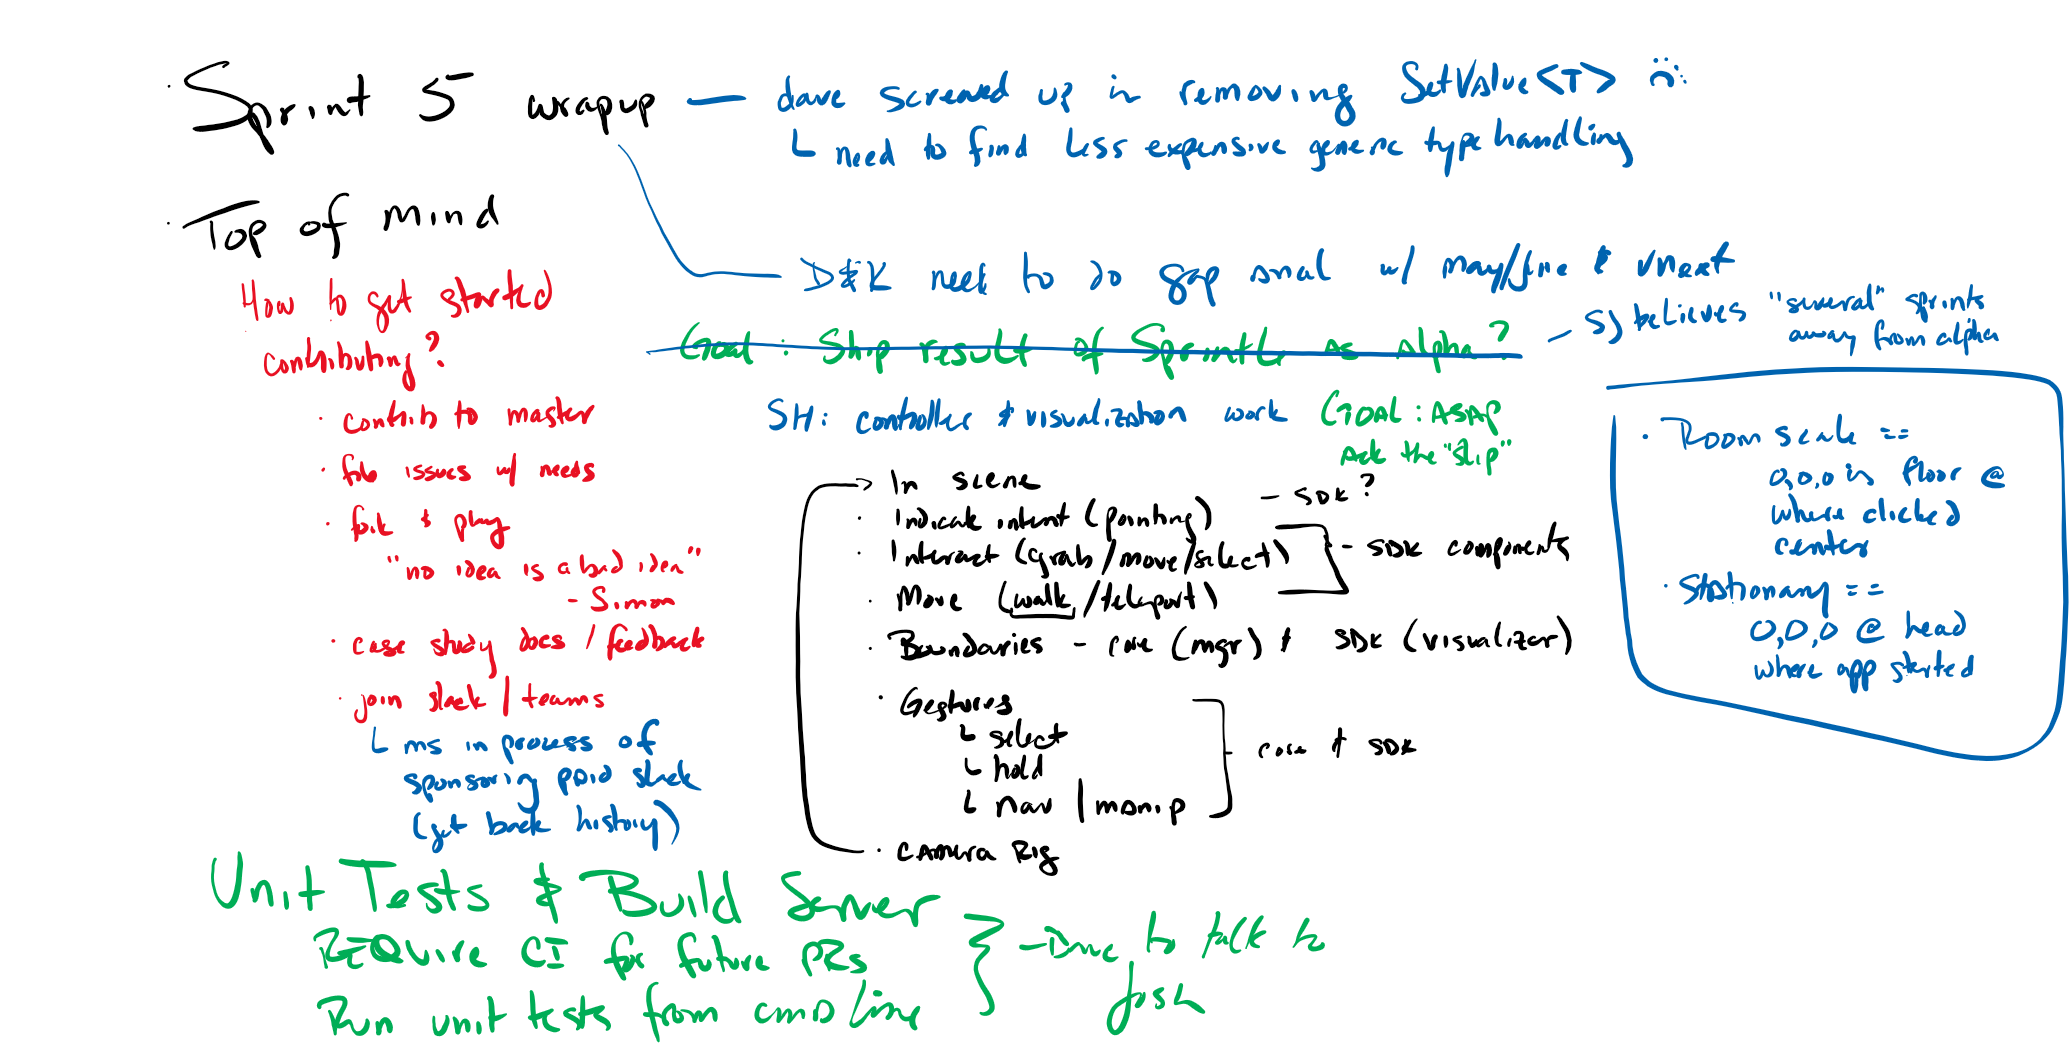 Sprint 5 wrapup — dave screwed up in removing SetValue<T>
need to find less expensive generic type handling
Top of mind
D&K need to do gap anal w/ may/june & vnext
How to get started
contributing?
· contrib to master
· file issues w/ needs
· fork & play
"no idea is a bad idea"
- Simon
· case study docs / feedback
· join slack / teams
ms in process of
sponsoring paid slack
(get back history)
Goal : Ship result of Sprint 6 as Alpha?
— SJ believes "several" sprints
away from alpha
SH: controller & visualization work
GOAL : ASAP
Ack the "slip"
In scene
· Indicate intent (pointing) - SDK?
· Interact (grab/move/select)
· Move (walk/teleport)
- SDK components
· Boundaries - core (mgr) & SDK (visualizer)
· Gestures
select
hold
nav / manip
core & SDK
· Camera Rig
· Room scale ==
0,0,0 is floor @
where clicked
center
· Stationary ==
0,0,0 @ head
where app started
Unit Tests & Build Server
REQuire CI for future PRs
Run unit tests from cmD line
- Dave to talk to
Josh